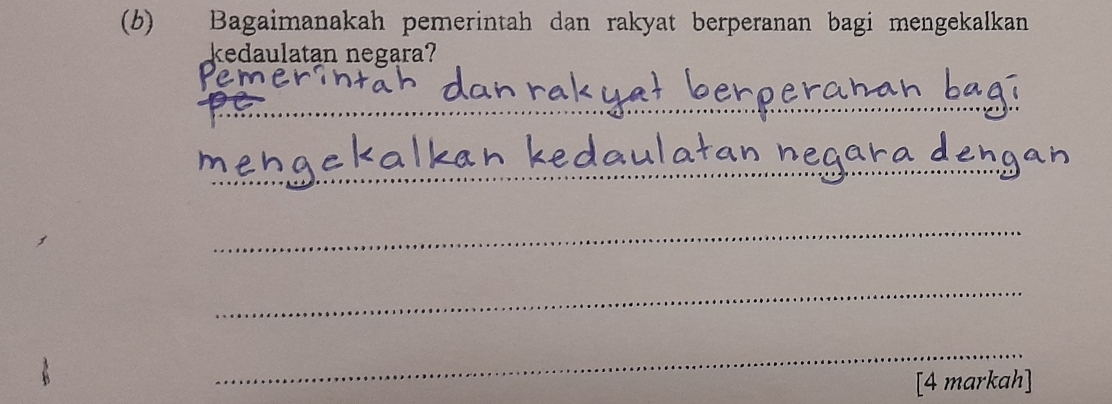 (b) Bagaimanakah pemerintah dan rakyat berperanan bagi mengekalkan
kedaulatan negara?
Pemerintah dan rakyat berperanan bagi
pe
mengekalkan kedaulatan negara dengan
[4 markah]